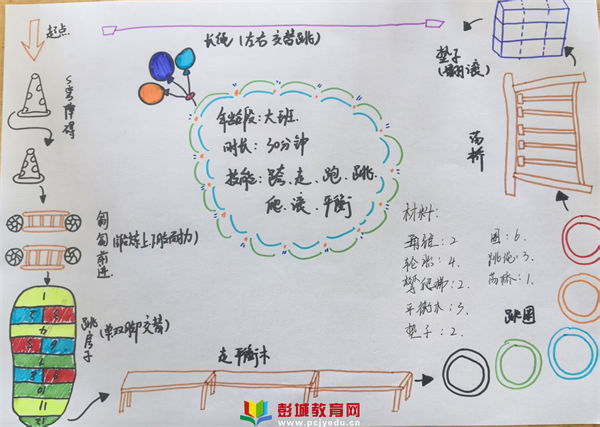 起点
长绳(左右交替跳)
垫子
(翻滚)
S弯障碍
年龄段:大班.
时长:30分钟
技能:跨、走、跑、跳、
爬、滚、平衡
高桥
匍匐前进
(锻炼上下肢耐力)
材料:
角锥:2
轮胎:4.
攀爬梯:2
平衡木:3.
垫子:2.
圈:6.
跳绳:3.
高桥:1.
跳房子
(单双脚交替)
跳圈
走平衡木
彭城教育网
www.pcjyedu.cn